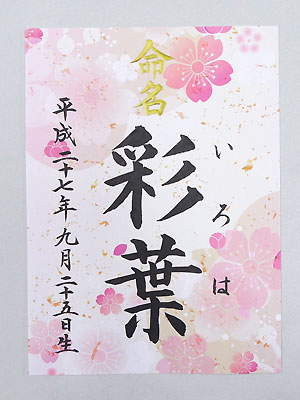 命名
いろは
彩葉
平成二十七年九月二十五日生